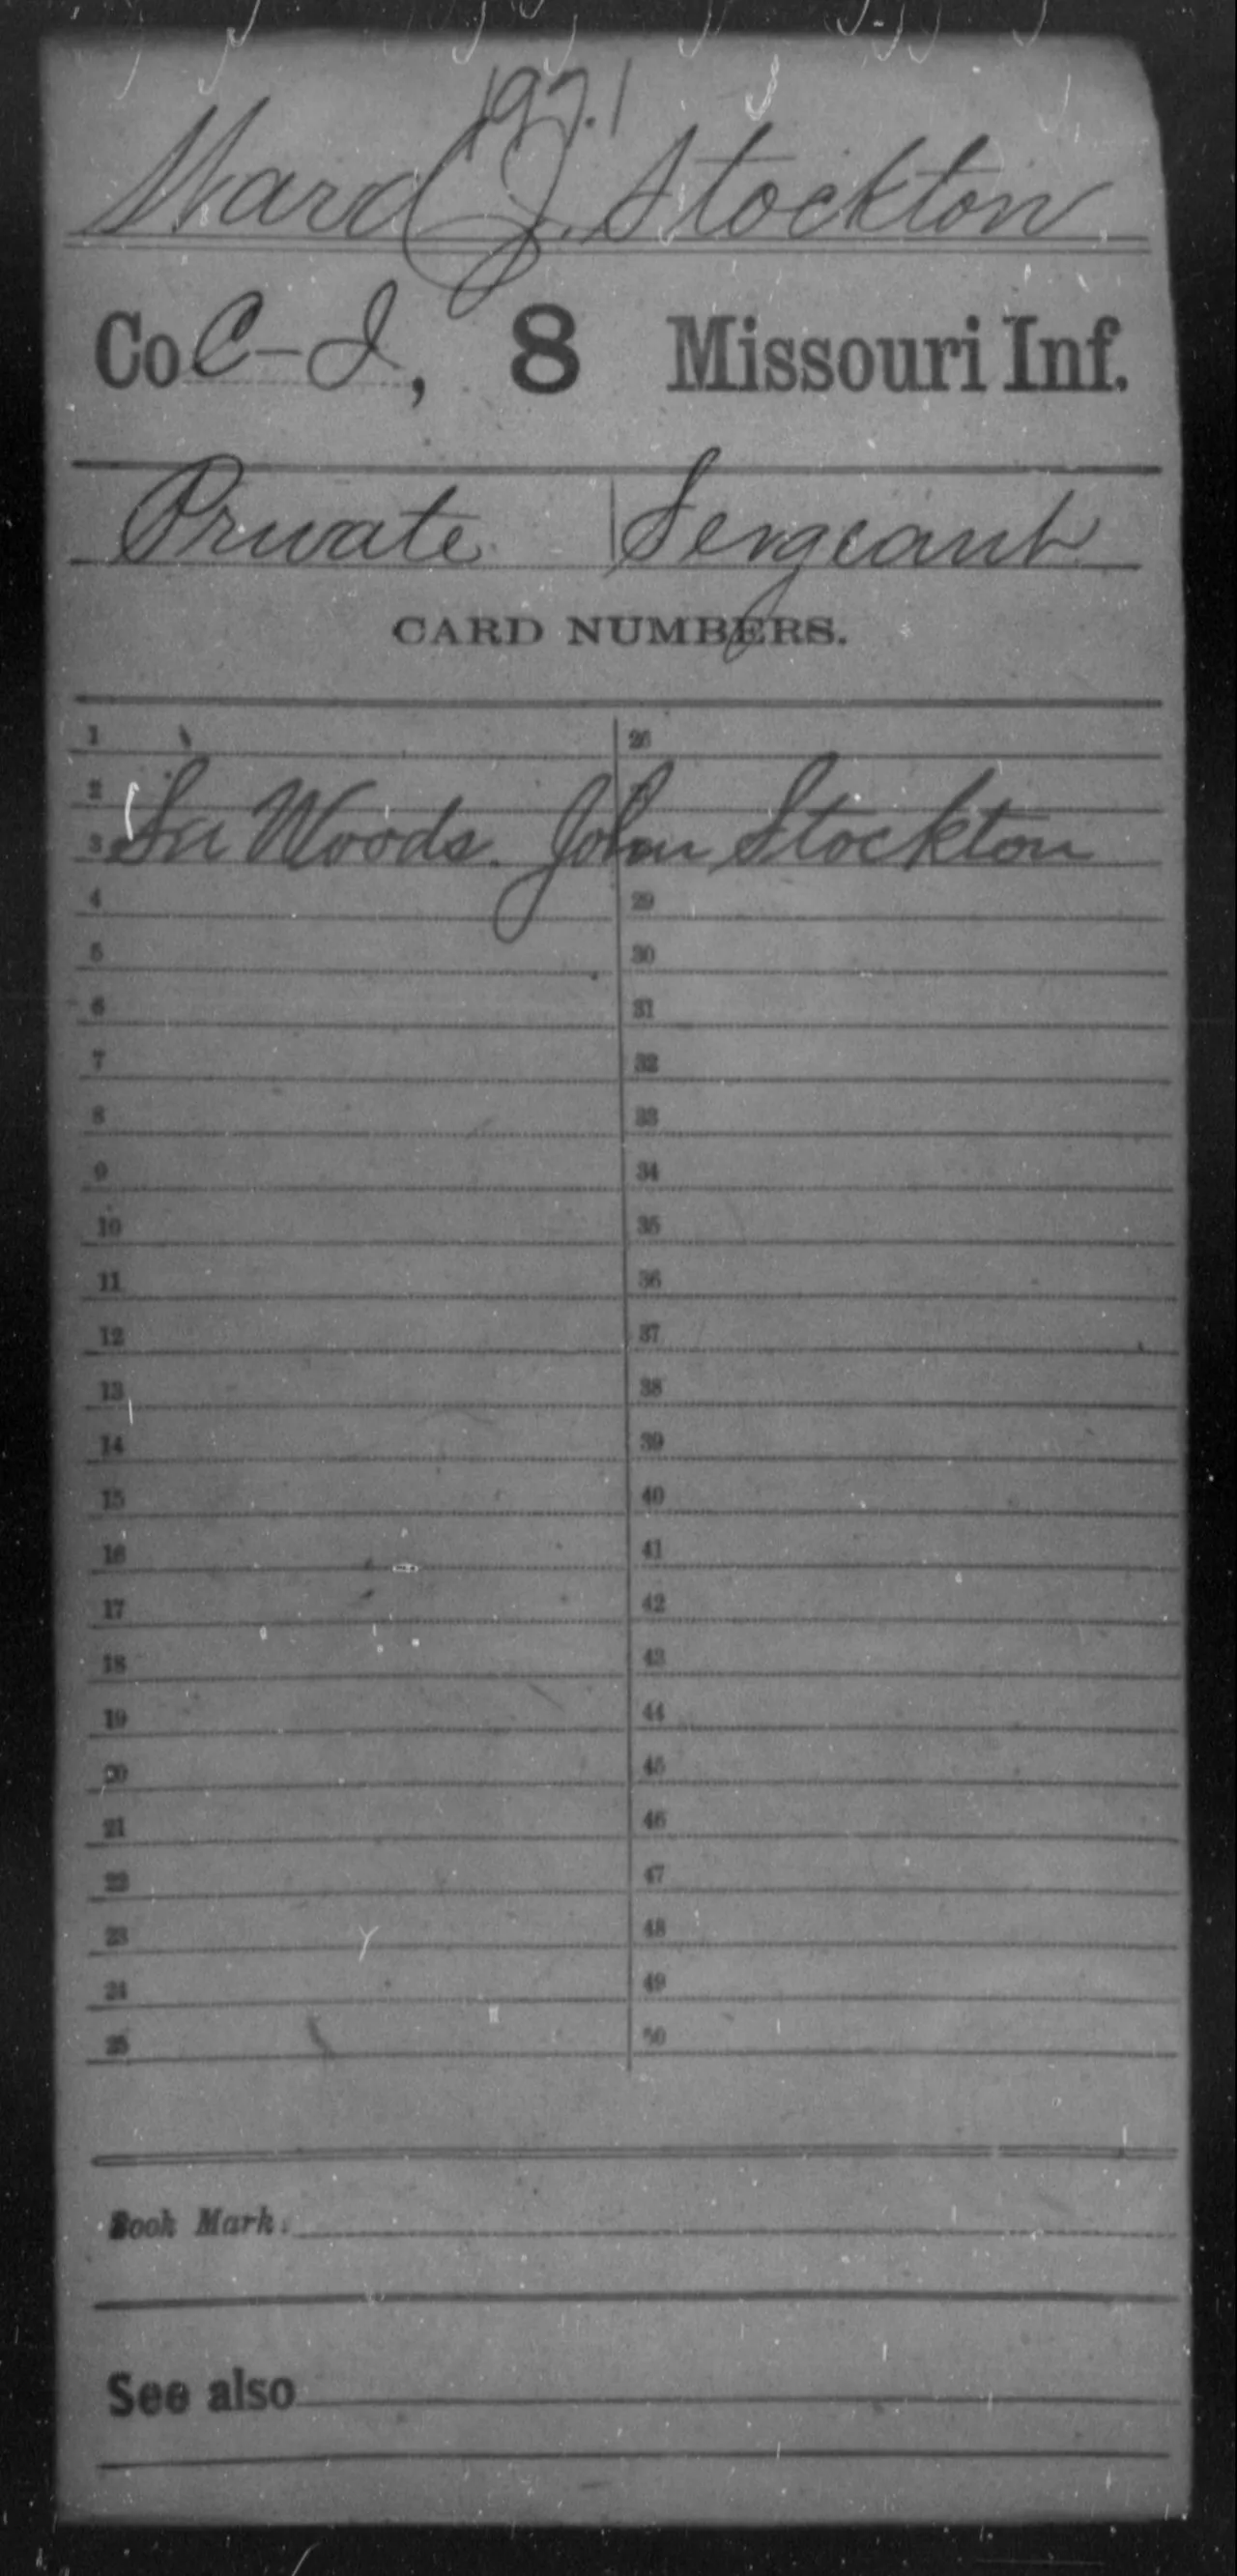 Ward J. Stockton
Co C-I, 8 Missouri Inf.
Private Sergeant
CARD NUMBERS.
1 26
2
3 In Woods. John Stockton
4 29
5 30
6 31
7 32
8 33
9 34
10 35
11 36
12 37
13 38
14 39
15 40
16 41
17 42
18 43
19 44
20 45
21 46
22 47
23 48
24 49
25 50
Book Mark:
See also